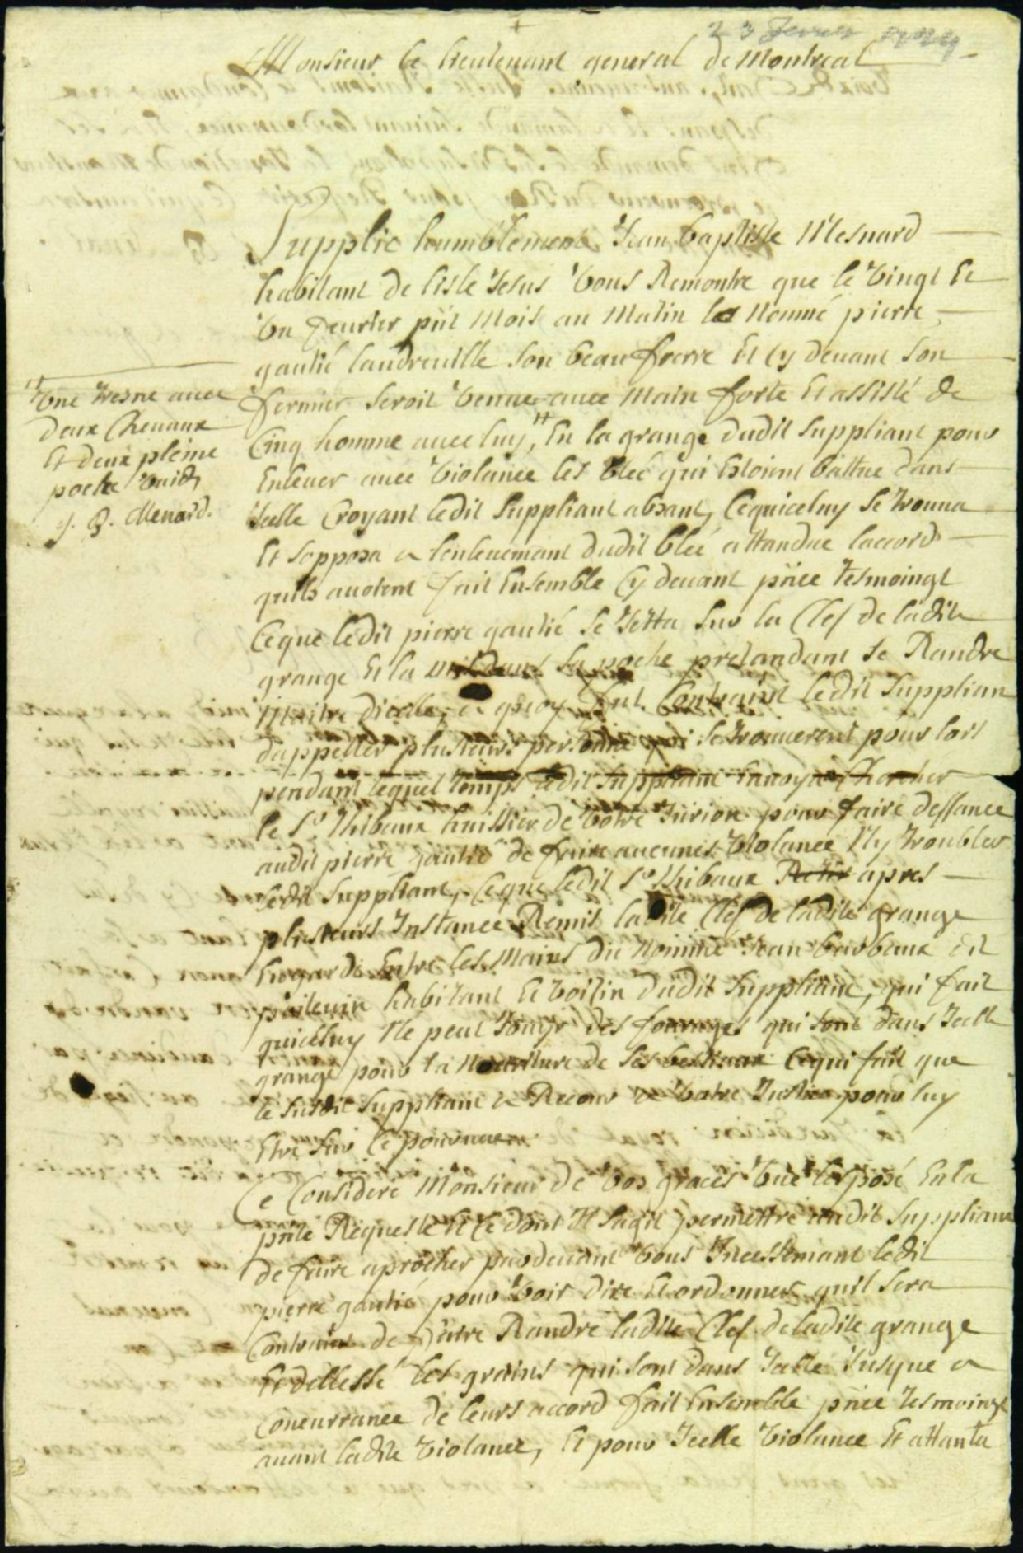 23 fevrier
Monsieur le lieutenant general de Montreal
Supplie humblement Jean baptiste Mesnard
habitant de lisle Jesus Vous Remontre que le Vingt Et
Un feuvrier pnt Mois au Matin le Nommé pierre
gautié landreuille son beau frerre Et Cy deuant son
fermier seroit Venue auec Main forte Et assisté de
Cinq homme auec luy, # En la grange dudit suppliant pour
Enleuer auec Violance les bleé qui Estoient battue dans
Icelle Croyant ledit suppliant absant, Cequiceluy se trouua
Et sopposa a lenleuemant dudit bleé attandue laccord
quils auoient fait Ensemble Cy deuant pnce tesmoingt
Ceque ledit pierre gautié se Jetta sur la Clef de ladite
grange Et la mit dans sa poche pretandant se Randre
Maitre dicelle, a quoy fut Contraint ledit supplian
dappeller plusieurs personne qui se trouuerent pour lors
pendant lequel temps ledit suppliant Enuoya Chercher
le Sr thibaux huissier de Votre Jurion pour faire deffance
audit pierre gautié de faire aucunes Violance Ny troubler
ledit suppliant, Ceque ledit Sr thibaux apres
plusieurs Instance Remis ladite Clef de ladite grange
En garde Entre les Mains du Nommé Jean barbeaux dit
poiteuin habitant Et Voisin dudit suppliant, qui fait
quiceluy Ne peut Jouyr des fourages qui sont dans Icelle
grange pour la Nouriture de ses bestiaux Cequi fait que
le susdit suppliant a Recour a Votre Justice pour luy
Etre sur Ce pourueu
Ce Consideré Monsieur de Vos graces Vue lexposé En la
pnte Requeste Et Ce dont Il sagit permettre audit suppliant
de faire aprocher pardeuant Vous Incessemant ledit
pierre gautié pour Voir dire Et ordonner quil sera
Contraint de Randre ladite Clef de ladite grange
Et delessé les grains qui sont dans Icelle Jusque a
Concurrance de leurs accord fait Ensemble pnce tesmoings
auant ladite Violance, Et pour Icelle Violance Et attanta
# Une tresne auec
deux Cheuaux
Et deux pleine
poche Vuide
J. B. Menard.